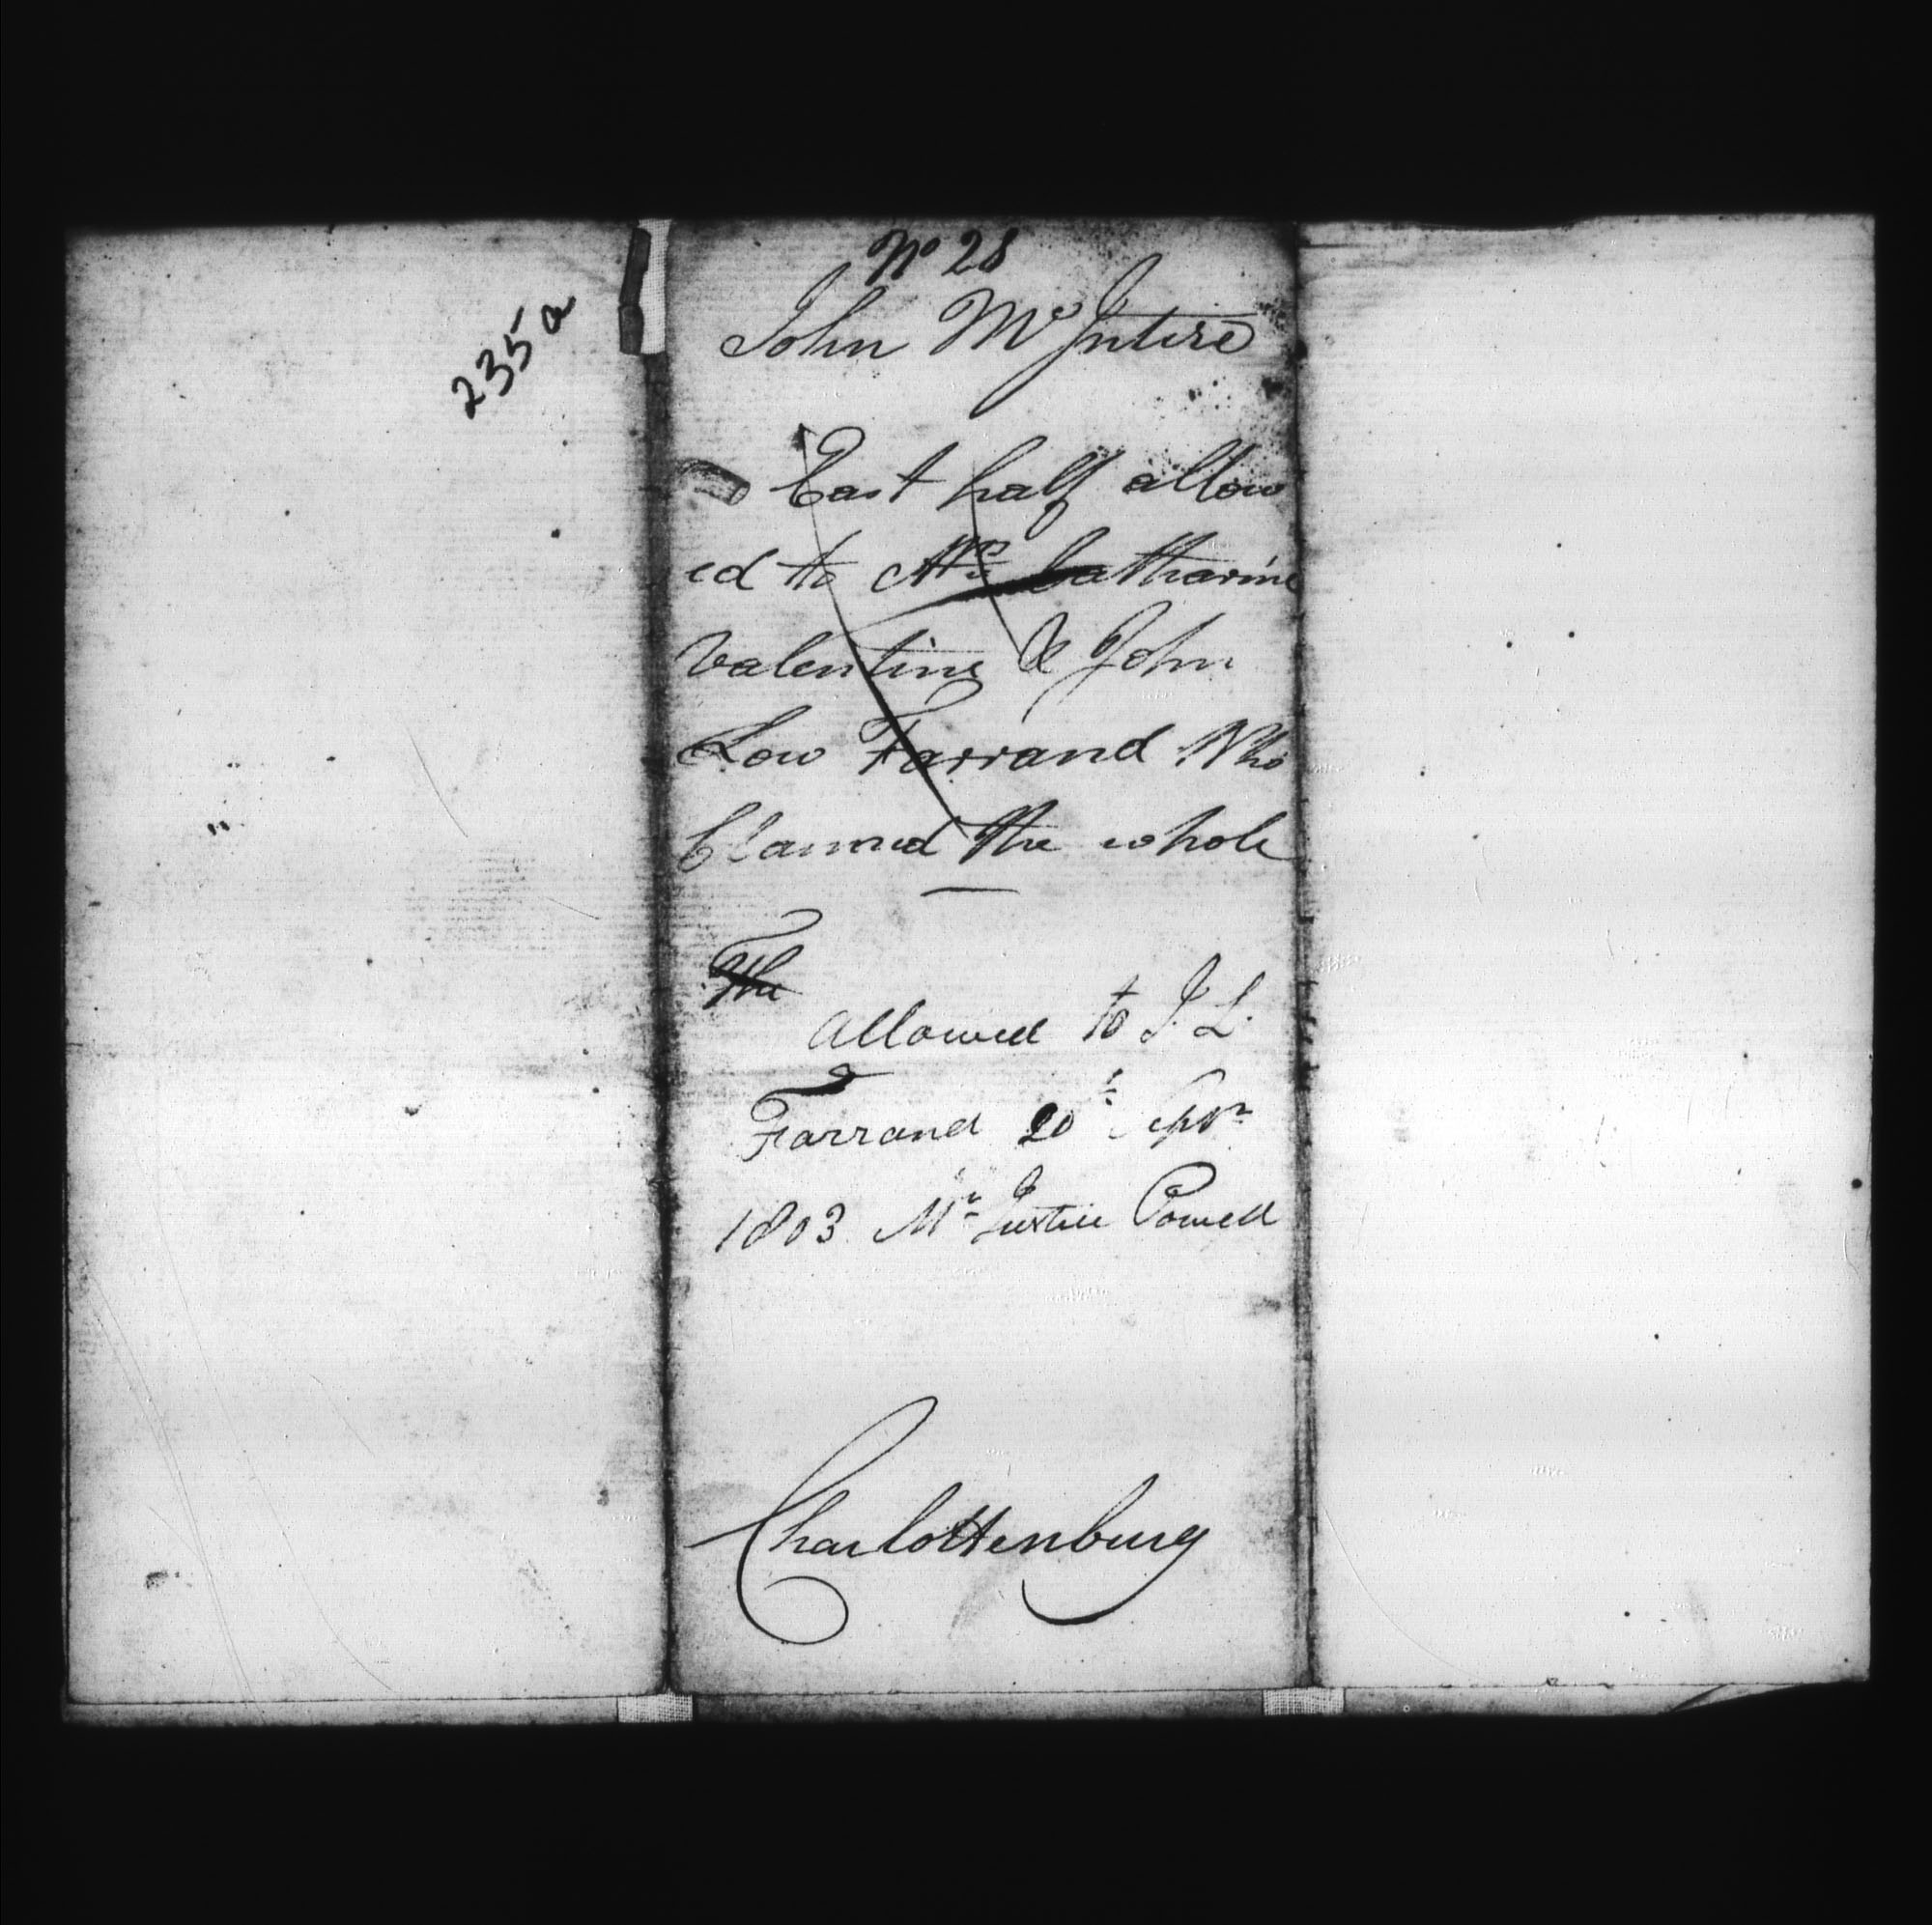 235a
No 28
John McIntire
East half allow
ed to Mrs Catharine
Valentine & John
Low Farrand Who
Claimed the whole
The
Allowed to J. L.
Farrand 20th Septr
1803 Mr Justice Powell
Charlottenburg